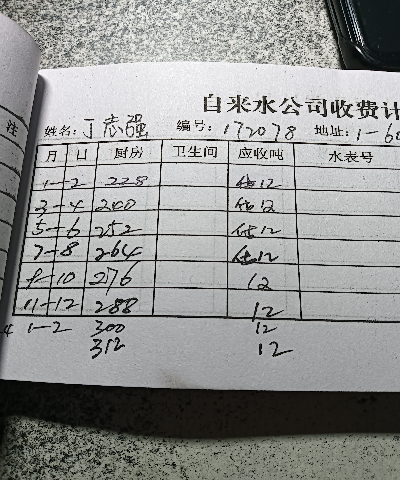 自来水公司收费计
姓名: 丁志强 编号: 172078 地址: 1-60
注
月 日 厨房 卫生间 应收吨 水表号
1-2 228 估12
3-4 240 估12
5-6 252 估12
7-8 264 估12
9-10 276 12
11-12 288 12
1-2 300 12
312 12